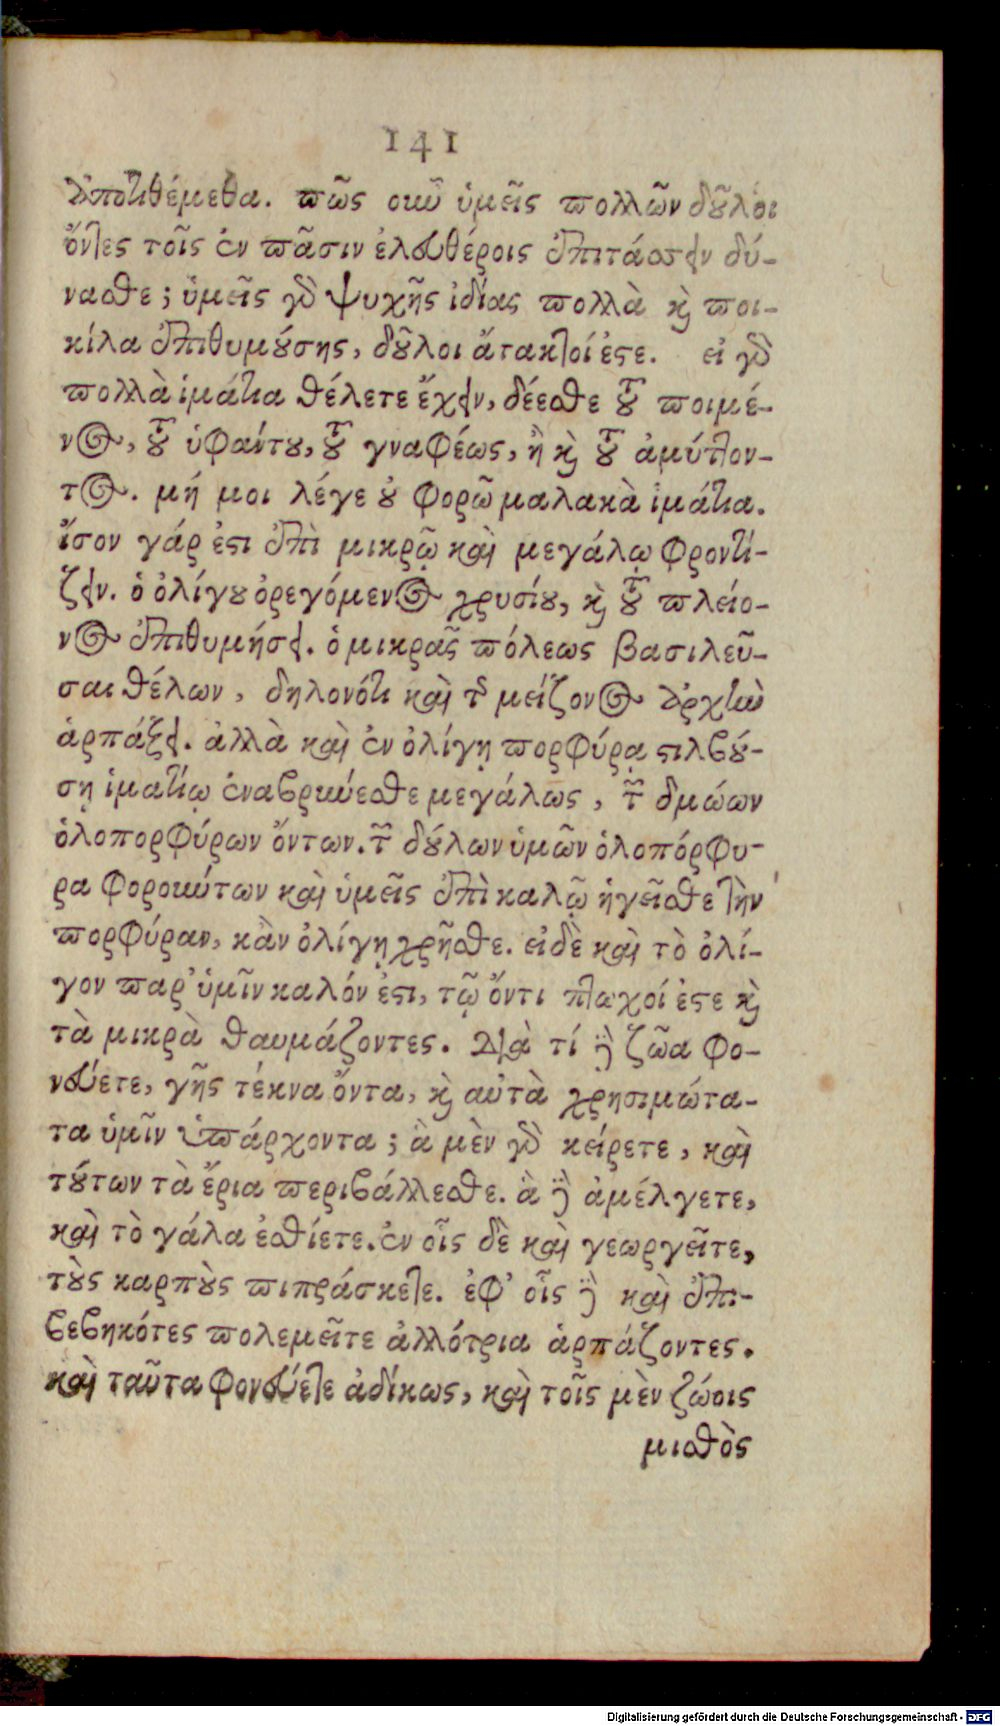 141
ἀποτιθέμεθα. πῶς οὖν ὑμεῖς πολλῶν δοῦλοι
ὄντες τοῖς ἐν πᾶσιν ἐλευθέροις ἐπιτάσσειν δύ-
νασθε; ὑμεῖς γὰρ ψυχῆς ἰδίας πολλὰ καὶ ποι-
κίλα ἐπιθυμούσης, δοῦλοι ἄτακτοί ἐστε. εἰ γὰρ
πολλὰ ἱμάτια θέλετε ἔχειν, δέεσθε τοῦ ποιμέ-
νος, τοῦ ὑφάντου, τοῦ γναφέως, ἢ καὶ τοῦ ἀμύττον-
τος. μή μοι λέγε οὐ φορῶ μαλακὰ ἱμάτια.
ἴσον γάρ ἐστι ἐπὶ μικρῷ καὶ μεγάλῳ φροντί-
ζειν. ὁ ὀλίγου ὀρεγόμενος χρυσίου, καὶ τοῦ πλείο-
νος ἐπιθυμήσει. ὁ μικρᾶς πόλεως βασιλεῦ-
σαι θέλων, δηλονότι καὶ τῆς μείζονος ἀρχὴν
ἁρπάξει. ἀλλὰ καὶ ἐν ὀλίγῃ πορφύρᾳ στιλβού-
σῃ ἱματίῳ ἐναβρύνεσθε μεγάλως, τῶν δμώων
ὁλοπορφύρων ὄντων. τῶν δούλων ὑμῶν ὁλοπόρφυ-
ρα φορούντων καὶ ὑμεῖς ἐπὶ καλῷ ἡγεῖσθε τὴν
πορφύραν, κἂν ὀλίγῃ χρῆσθε. εἰ δὲ καὶ τὸ ὀλί-
γον παρ' ὑμῖν καλόν ἐστι, τῷ ὄντι πτωχοί ἐστε καὶ
τὰ μικρὰ θαυμάζοντες. Διὰ τί δὲ ζῶα φο-
νεύετε, γῆς τέκνα ὄντα, καὶ αὐτὰ χρησιμώτα-
τα ὑμῖν ὑπάρχοντα; ἃ μὲν γὰρ κείρετε, καὶ
τούτων τὰ ἔρια περιβάλλεσθε. ἃ δὲ ἀμέλγετε,
καὶ τὸ γάλα ἐσθίετε. ἐν οἷς δὲ καὶ γεωργεῖτε,
τοὺς καρποὺς πιπράσκετε. ἐφ' οἷς δὲ καὶ ἐπι-
βεβηκότες πολεμεῖτε ἀλλότρια ἁρπάζοντες.
καὶ ταῦτα φονεύετε ἀδίκως, καὶ τοῖς μὲν ζώοις
μισθὸς
Digitalisierung gefördert durch die Deutsche Forschungsgemeinschaft - DFG